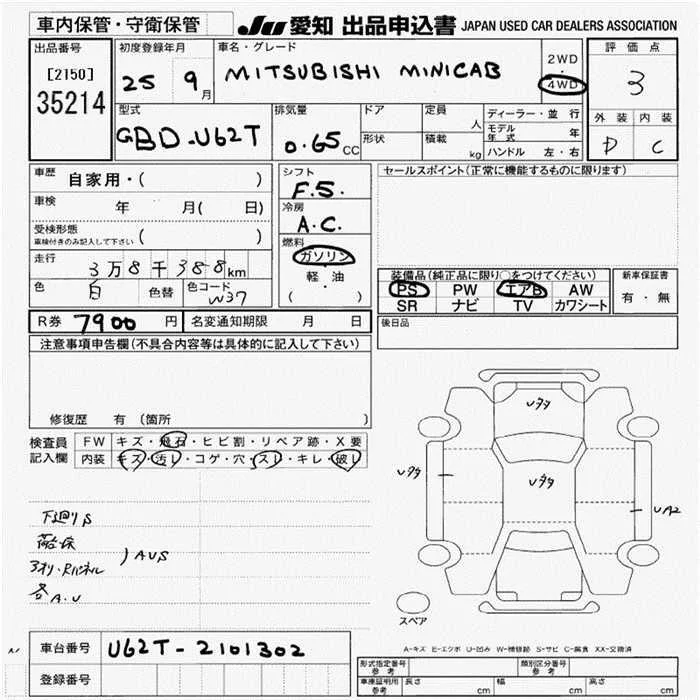 車内保管・守衛保管
JU 愛知 出品申込書 JAPAN USED CAR DEALERS ASSOCIATION
出品番号
[2150]
35214
初度登録年月
25 9月
車名・グレード
MITSUBISHI MINICAB
2WD
・
4WD
評価点
3
外装 内装
D C
型式
GBD-U62T
排気量
0.65 CC
ドア
形状
定員 人
積載 kg
ディーラー・並行
モデル年式 年
ハンドル 左・右
車歴 自家用・( )
車検 年 月( 日)
受検形態
車検付きのみ記入して下さい ( )
走行 3万8千388km
色 白 色替 色コード W37
シフト
F.5.
冷房
A.C.
燃料
ガソリン
・
軽・油
( )
セールスポイント(正常に機能するものに限ります)
装備品(純正品に限り○をつけてください)
PS PW エアB AW
SR ナビ TV カワシート
新車保証書
有・無
R券 7900 円 名変通知期限 月 日
後日品
注意事項申告欄(不具合内容等は具体的に記入して下さい)
修復歴 有 (箇所 )
検査員記入欄
FW キズ・飛石・ヒビ割・リペア跡・X要
内装 キズ・汚レ・コゲ・穴・スレ・キレ・破レ
下廻りS
AUS
アオリ・Rパネル
各A.U
Uタタ
Uタタ
Uタタ
UA2
スペア
A-キズ E-エクボ U-凹み W-補修跡 S-サビ C-腐食 XX-交換済
車台番号 U62T-2101302
登録番号
形式指定番号
参考
類別区分番号
参考
車庫証明用
参考
長さ cm 幅 cm 高さ cm